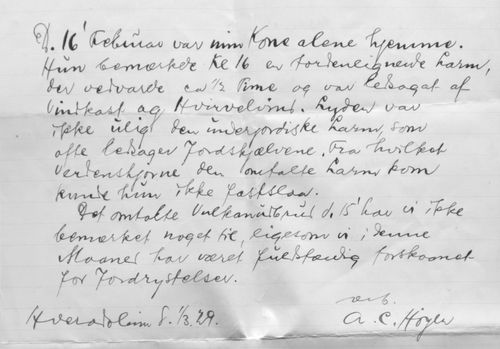 D. 16' Februar var min Kone alene hjemme.
Hun bemærkede Kl 16 en tordenlignende Larm,
der vedvarde ca 1/2 Time og var ledsaget af
Vindkast og Hvirvelvind. Lyden var
ikke ulig den underjordiske Larm, som
ofte ledsager Jordskjælvene. Fra hvilket
Verdenshjørne den omtalte Larm kom
kunde hun ikke fastslaa.
Det omtalte Vulkanudbrud d. 15' har vi ikke
bemærket noget til, ligesom vi i denne
Maaned har været fuldstændig forskaanet
for Jordrystelser.
1/3. 29.
A. C. Høyer